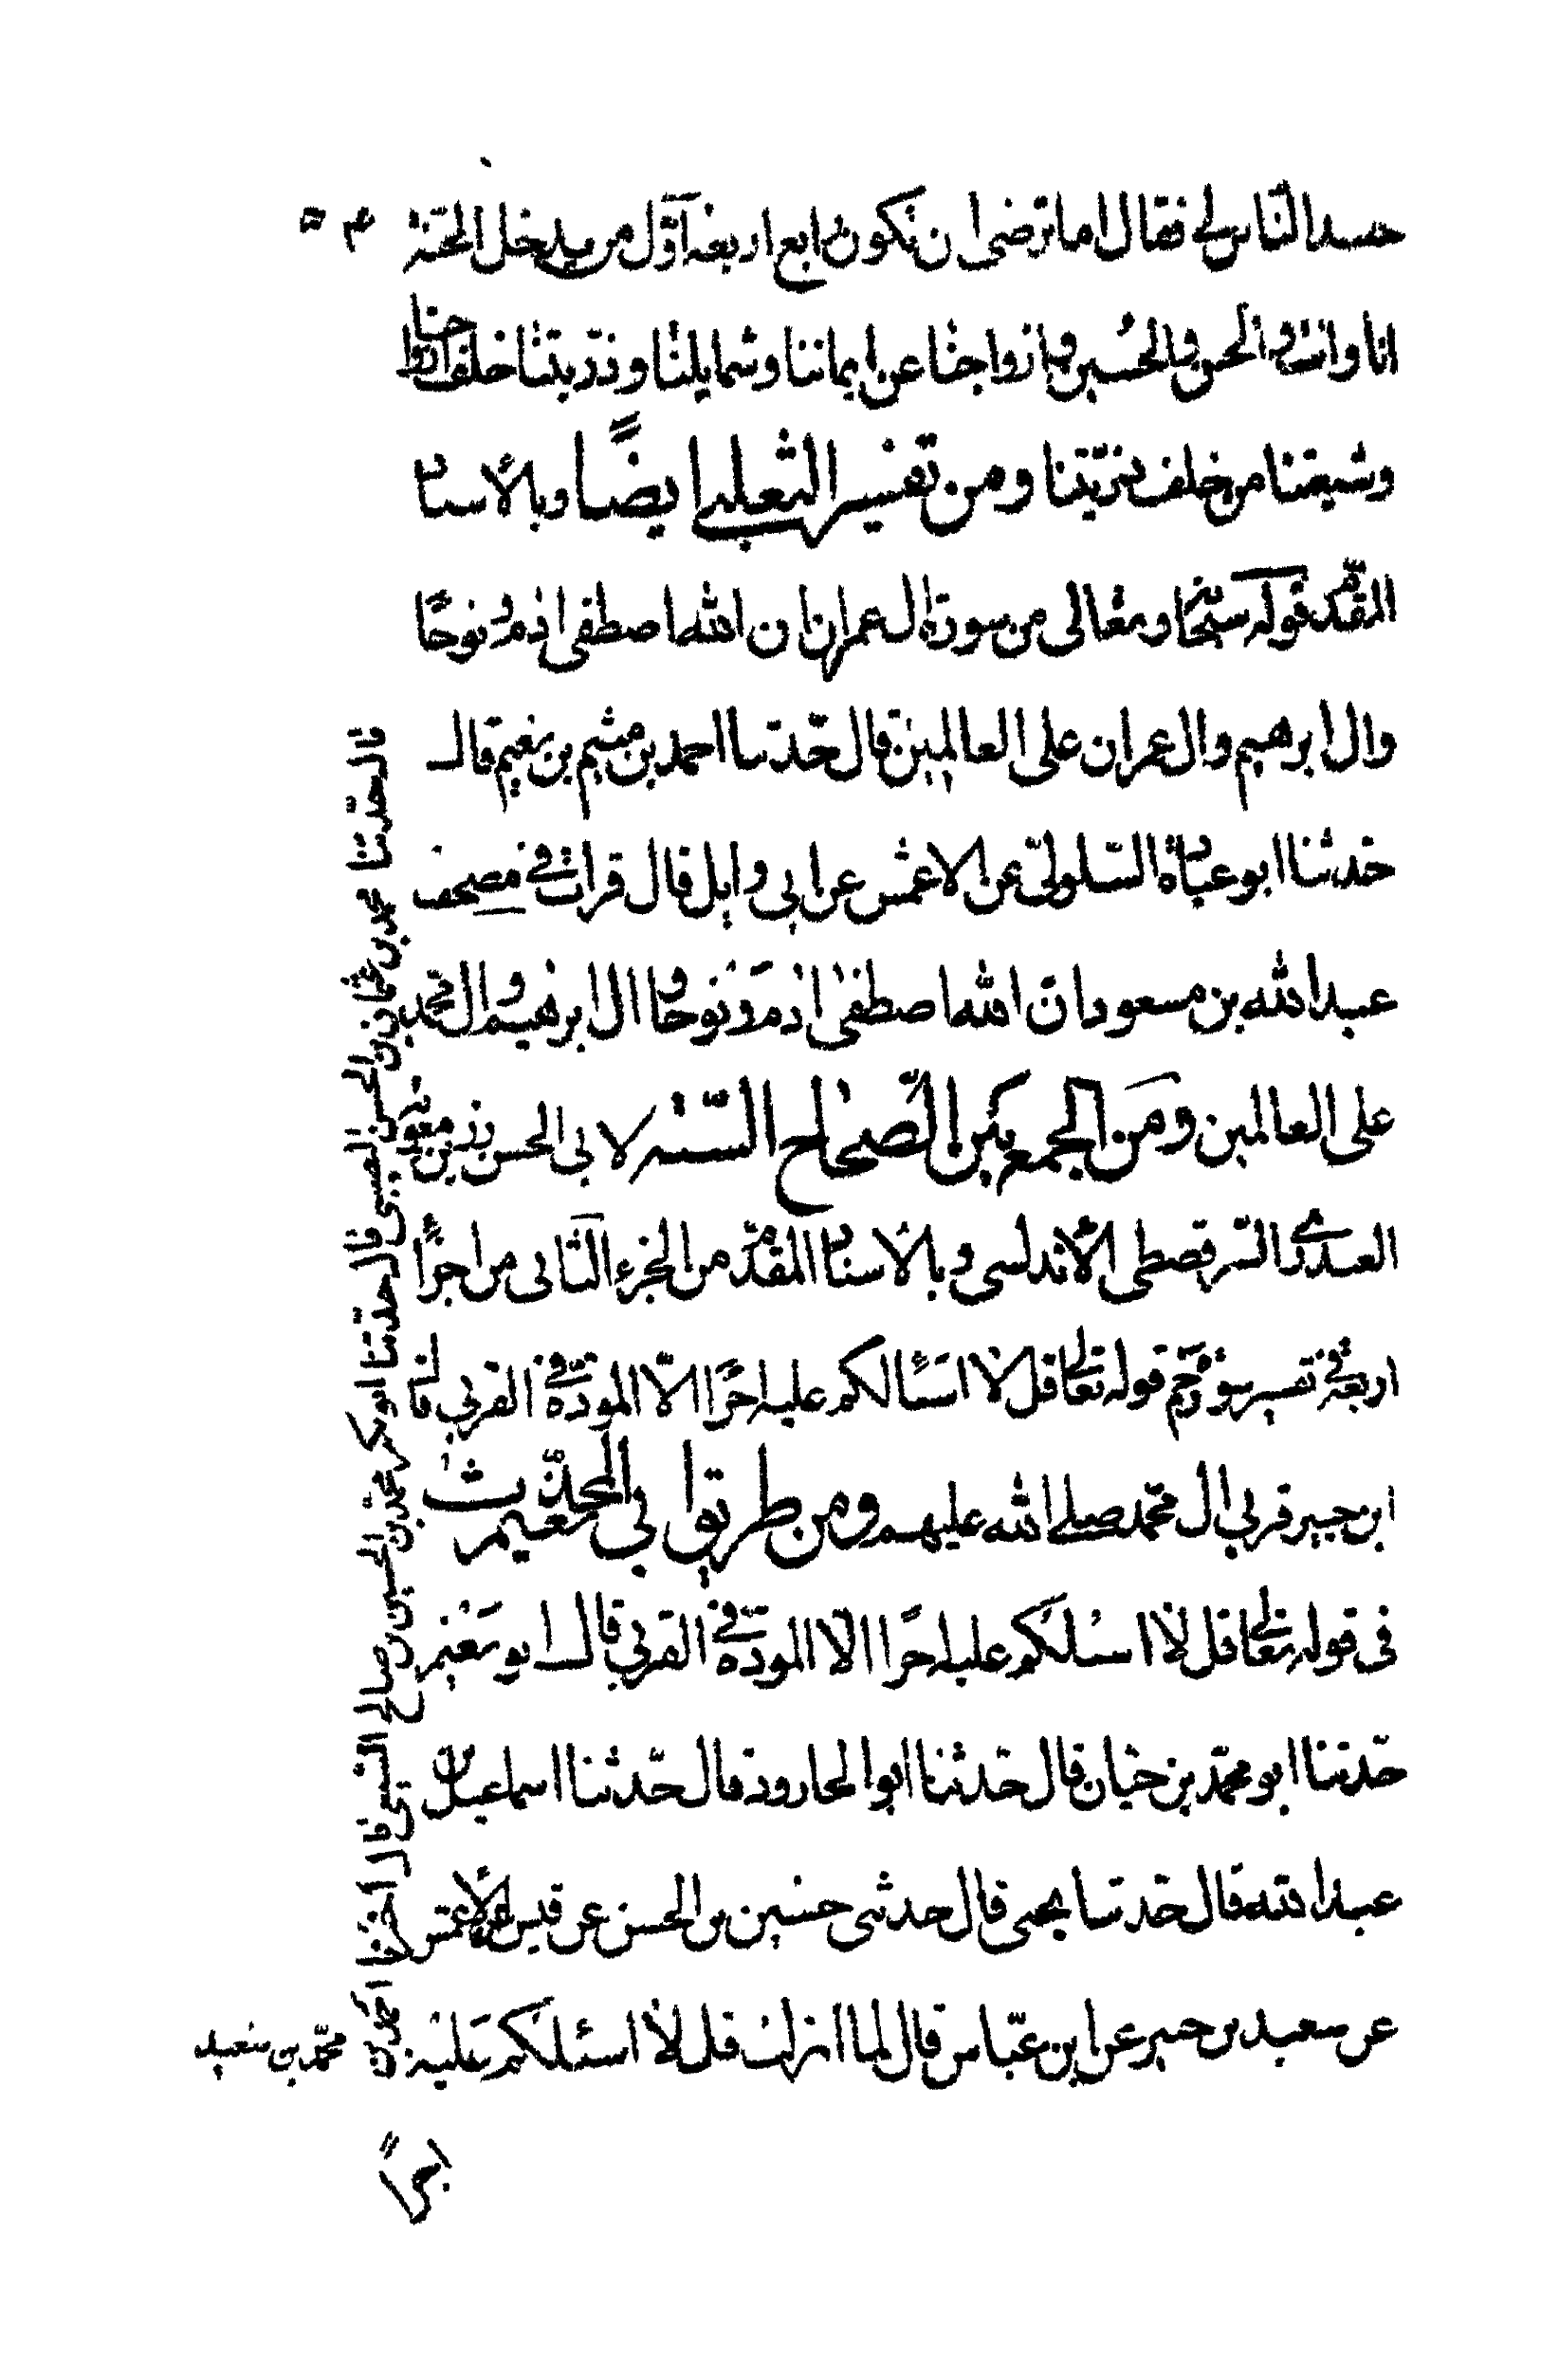 حسد الناس لي فقال اما ترضى ان تكون رابع اربعة اول من يدخل الجنة
انا وانت والحسن والحسين وازواجنا عن ايماننا وشمايلنا وذريتنا خلف ازواجنا
وشيعتنا من خلف ذريتنا ومن تفسير الثعلبي ايضًا وبالاسناد
المقدم قوله سبحانه وتعالى من سورة ال عمران ان الله اصطفى ادم ونوحًا
وال ابرهيم وال عمران على العالمين قال حدثنا احمد بن ميثم بن نعيم قال
حدثنا ابو عبادة السلولي عن الاعمش عن ابي وايل قال قرات في مصحف
عبد الله بن مسعود ان الله اصطفى ادم ونوحا وال ابرهيم وال محمد
على العالمين ومن الجمع بين الصحاح الستة لابي الحسن رزين بن معوية
العبدري السرقصطي الأندلسي وبالاسناد المقدم من الجزء الثاني من اجزاء
اربعة في تفسير سورة حم قوله تعالى قل لا اسئالكم عليه اجرًا الا المودة في القربى قال
ابن جبير قربى ال محمد صلى الله عليهم ومن طريق ابي نعيم المحدث
في قوله تعالى قل لا اسئلكم عليه اجرًا الا المودة في القربى قال ابو نعيم
حدثنا ابو محمد بن حيان قال حدثنا ابو الجارود قال حدثنا اسماعيل بن
عبد الله قال حدثنا يحيى قال حدثني حسين بن الحسن عن قيس عن الأعمش
عن سعيد بن جبير عن ابن عباس قال لما انزلت قل لا اسئلكم عليه
اجرًا
قال حدثنا محمد بن عثمان بن الحسن النصيبي قال حدثنا ابو بكر محمد بن الحسين بن صالح السبيعي قال اخبرنا احمد بن
محمد بن سعيد